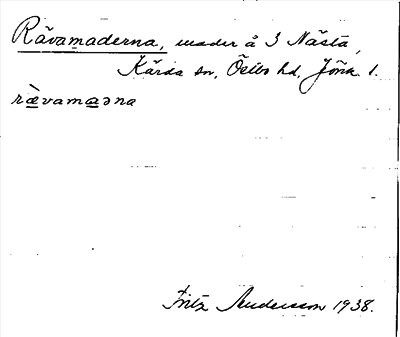 Rävamaderna, mader å 3 Nästa,
Kärda sn, Östbo hd, Jönk. l.
rævamaəna
Fritz Andersson 1938.